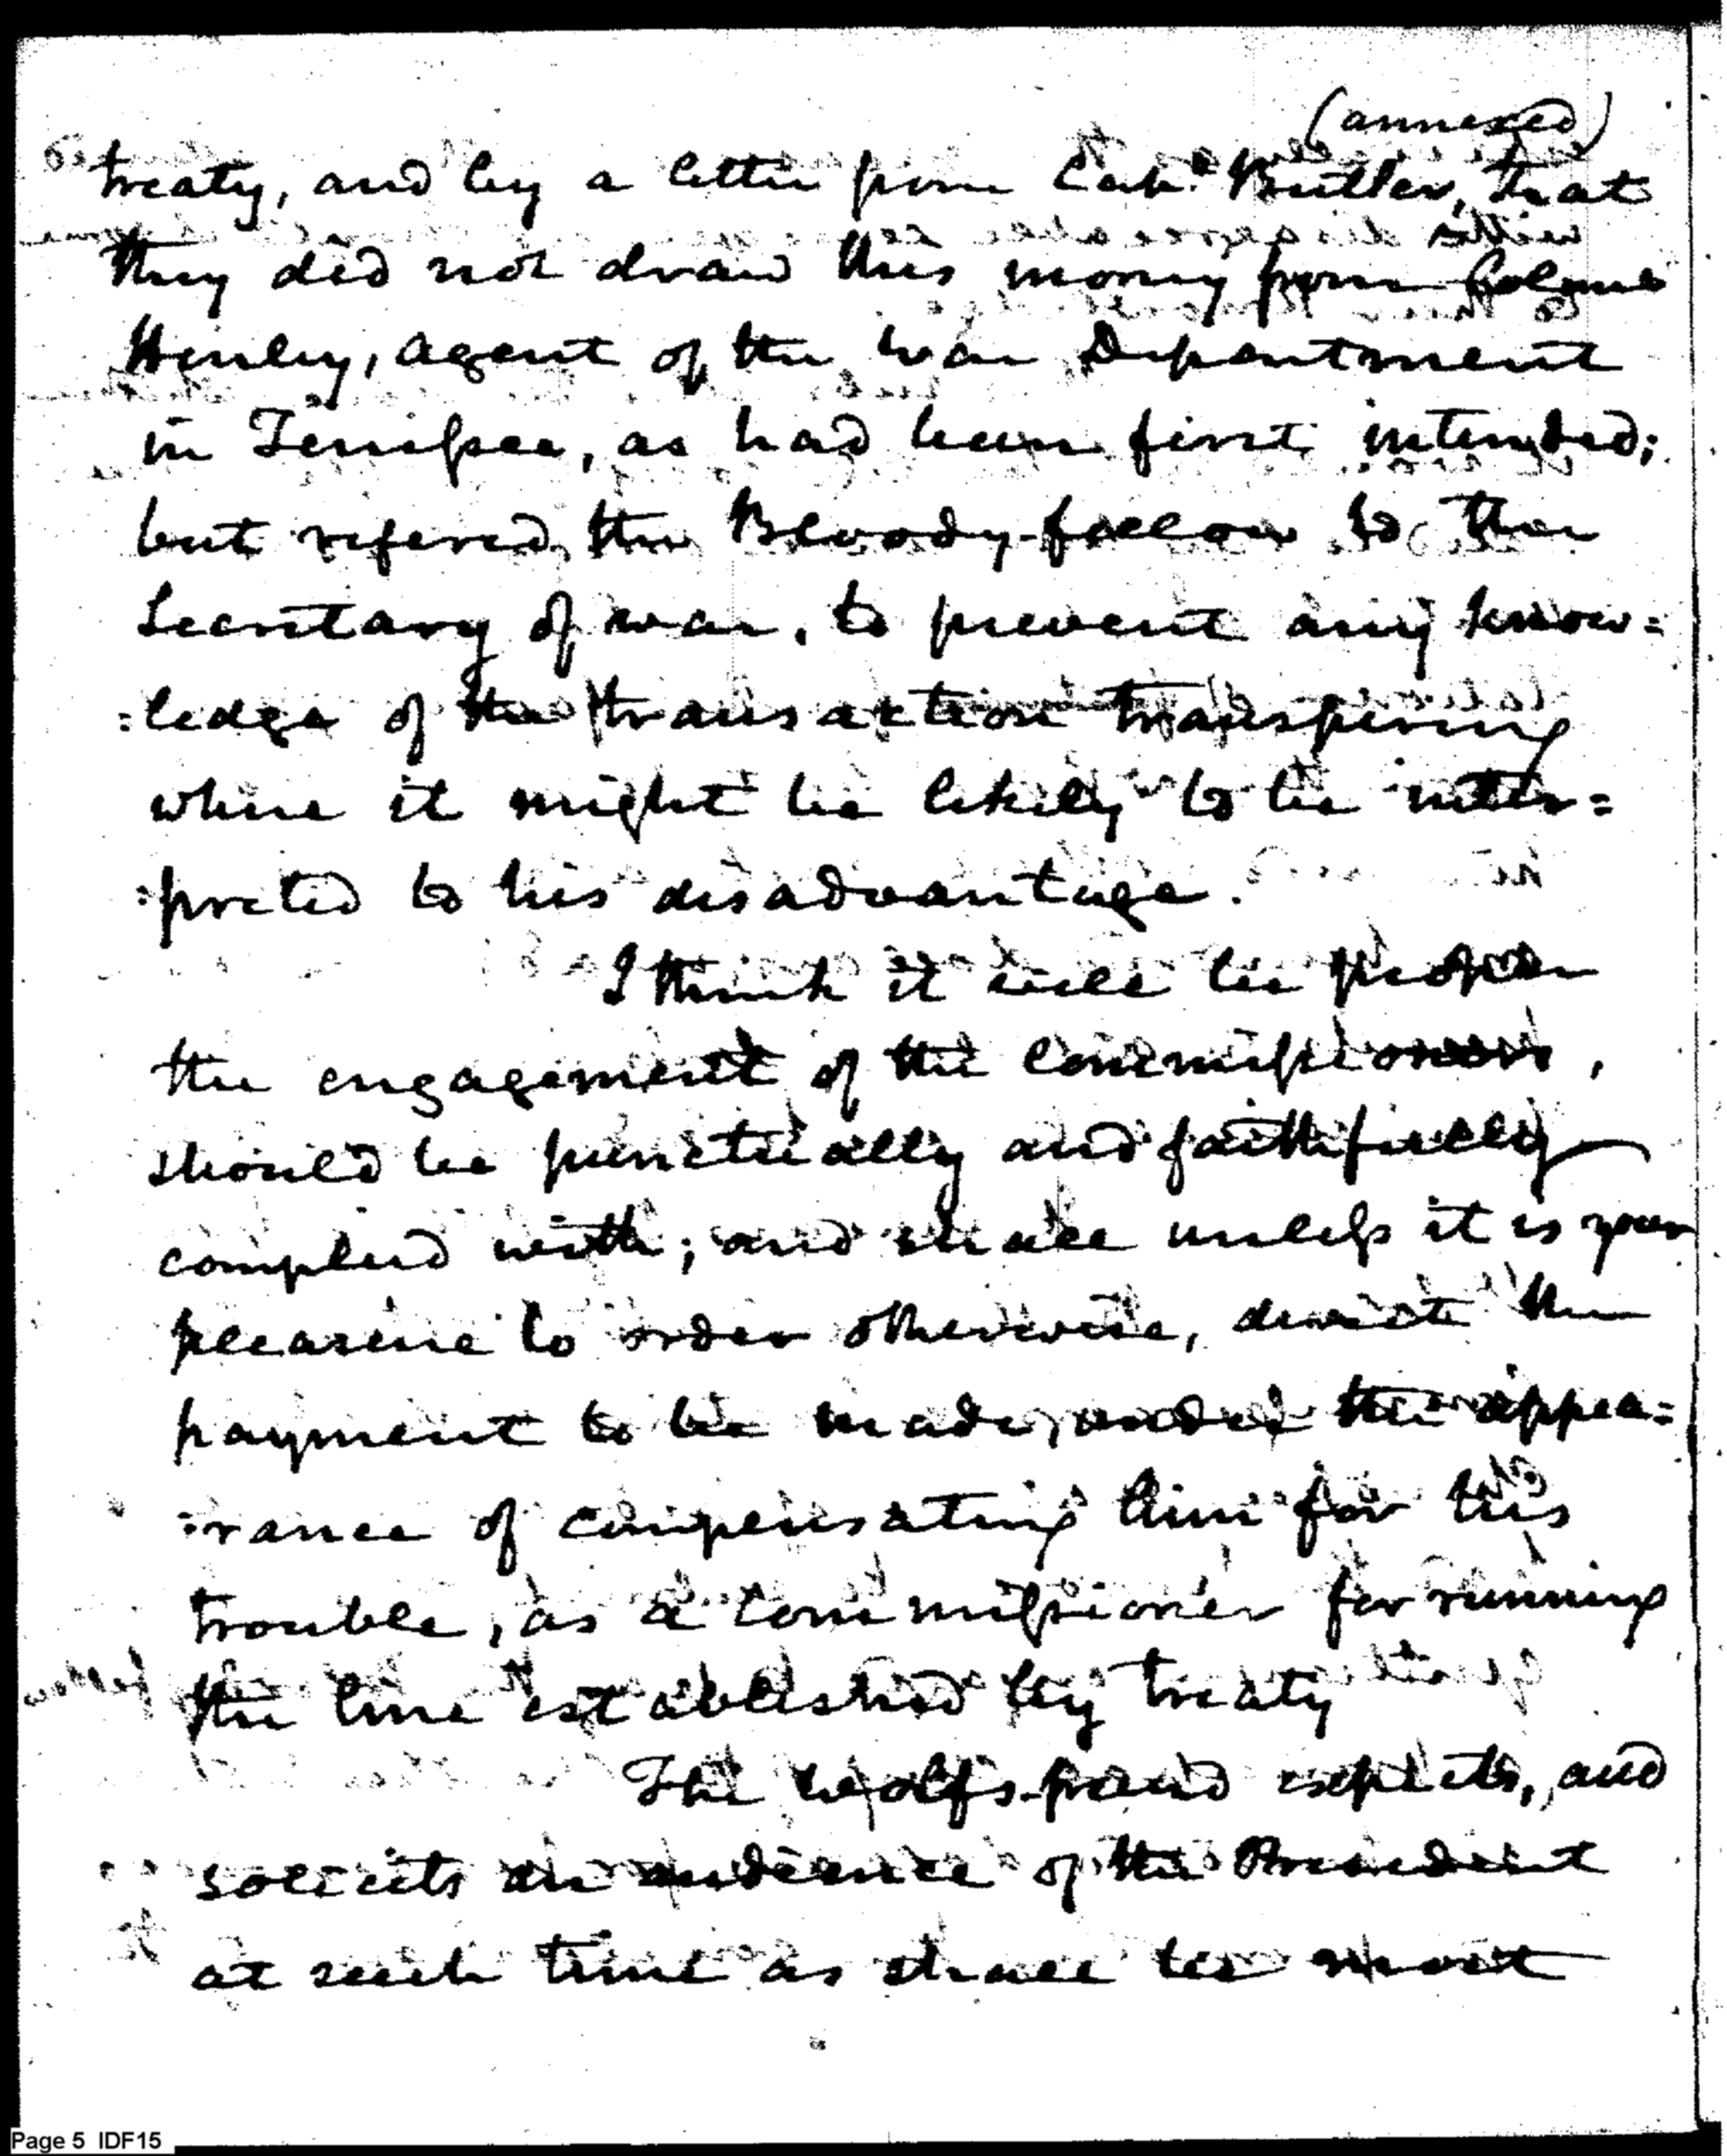 (annexed)
treaty, and by a letter from Capt. Butler, that
they did not draw this money from Colonel
Henley, agent of the war Department
in Tennessee, as had been first intended;
but refered the Bloody-fellow to the
Secretary of war, to prevent any know=
=ledge of the transaction transpiring
where it might be likely to be inter=
=preted to his disadvantage.
I think it will be proper
the engagement of the commissioners,
should be punctually and faithfully
complied with; and shall unless it is your
pleasure to order otherwise, direct the
payment to be made, under the appea=
=rance of compensating him for his
trouble, as a commissioner for running
the line established by treaty
The Wolfs-friend expects, and
solicits an audience of the President
at such time as shall be most
Page 5 IDF15